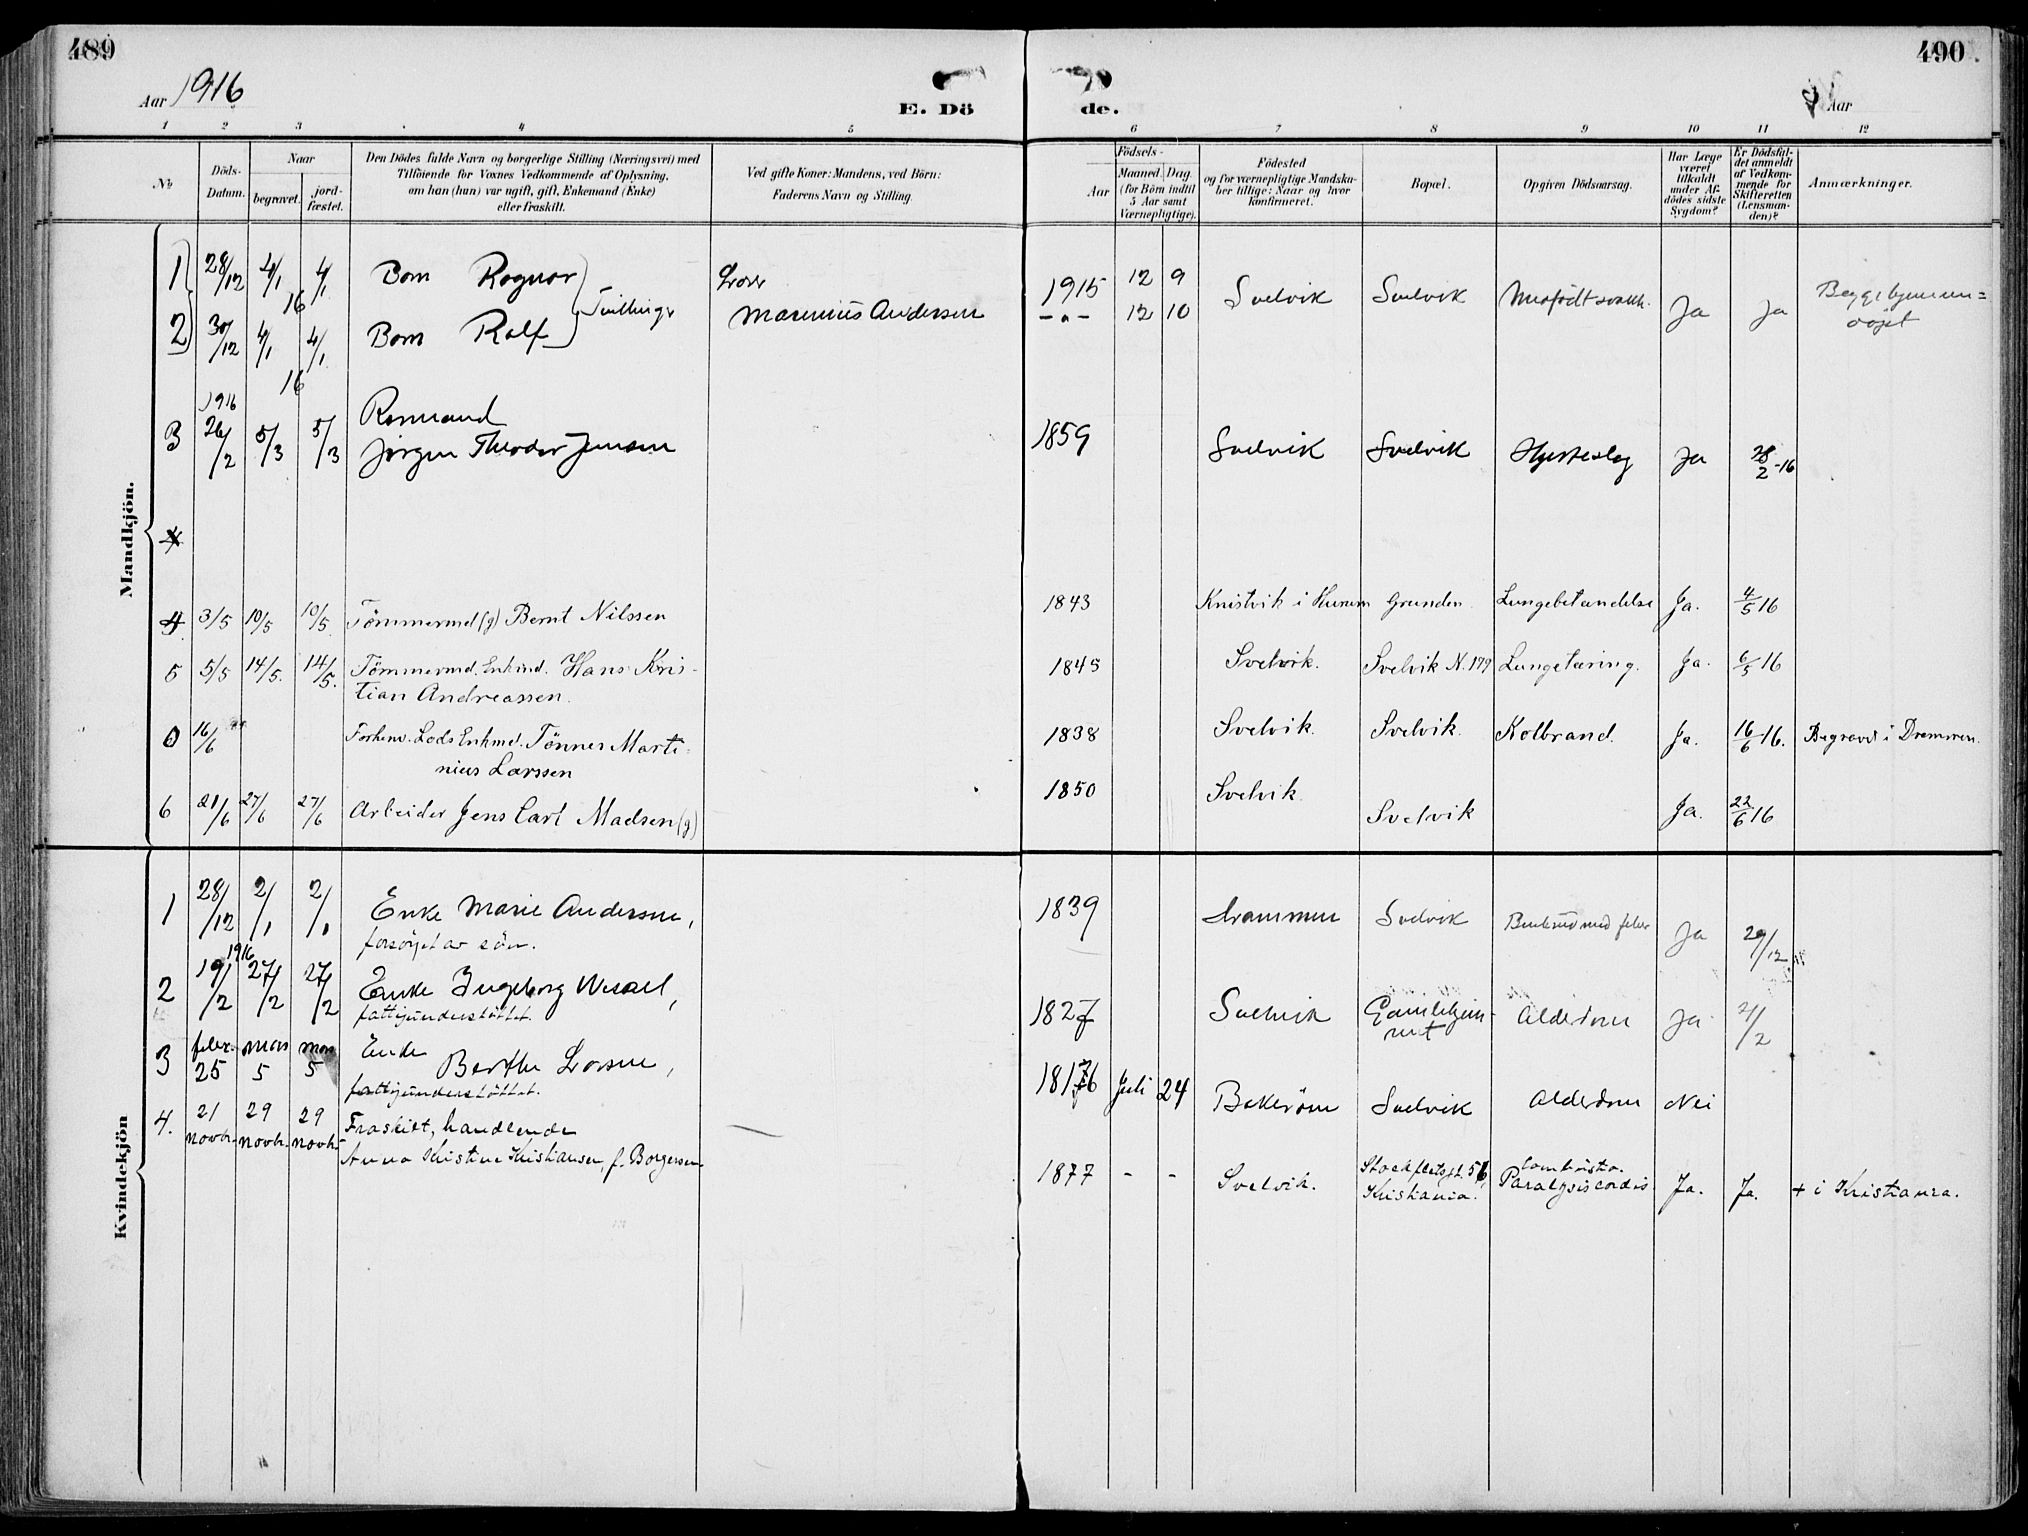 489
Aar 1916
E. Dö
de.
Aar
490
1 2 3 4 5 6 7 8 9 10 11 12
No
Döds-
Datum.
Naar
begravet.
jord-
fæstet.
Den Dödes fulde Navn og borgerlige Stilling (Næringsvei) med
Tilföiende for Voxnes Vedkommende af Oplysning,
om han (hun) var ugift, gift, Enkemand (Enke)
eller fraskilt.
Ved gifte Koner: Mandens, ved Börn:
Faderens Navn og Stilling.
Födsels-
Aar
Maaned. Dag.
(for Börn indtil
5 Aar samt
Værnepligtige).
Födested
og for værnepligtige Mandska-
ber tillige: Naar og hvor
konfirmeret.
Bopæl.
Opgiven Dödsaarsag.
Har Læge
været
tilkaldt
under Af-
dödes sidste
Sygdom?
Er Dödsfal-
det anmeldt
af Vedkom-
mende for
Skifteretten
(Lensman-
den)?
Anmærkninger.
Mandkjön.
1 28/12 4/1 16 4/1 Barn Ragnar
2 30/12 4/1 16 4/1 Barn Rolf
Tvillinger
Marenius Andersen
1915 12 9
-"- 12 10
Svelvik Svelvik Ja Ja
1916
3 26/2 5/3 5/3
Jørgen Theodor Jensen
1859 Svelvik Svelvik Hjerteslag Ja 28/2-16
4
4 3/5 10/5 10/5. Tömmermd (g) Bernt Nilssen 1843 Knistvik i Hurum Grunden. Lungebetændelse Ja. 4/5 16
5 5/5 14/5. 14/5. Tömmermd. Enkmd. Hans Kris-
tian Andreassen.
1845 Svelvik. Svelvik N. 179 Lungetæring. Ja. 6/5 16
0 16/6 Forhenv. Lods Enkmd. Tönnes Marti-
nius Larssen
1838 Svelvik. Svelvik. Kolbrand. Ja. 16/6 16. Begravet i Drammen.
6 21/6 27/6 27/6 Arbeider Jens Carl Madsen (g) 1850 Svelvik Svelvik Ja. 22/6 16
Kvindekjön
1 28/12 2/1 2/1 Enke Marie Andersen,
forsörget av sön.
1839 Drammen Svelvik Ja 29/12
1916
2 19/2 27/2 27/2 Enke Ingeborg
fattigunderstöttet.
1827 Svelvik Gamlehjem-
met
Alderdom Ja 21/2
3 febr. 25 mars 5 mars 5 Enke
Berthe Larsen,
fattigunderstöttet.
1816 Juli 24 Svelvik Alderdom Nei
4. 21 novbr. 29 novbr. 29 novbr. Fraskilt, handlende
Anna Kristine Kristiansen, f. Borgersen
1877 - - Svelvik. Stockfletsgt. 56,
Kristiania.
Combustio.
Paralysis cordis
Ja. Ja. + i Kristiania.